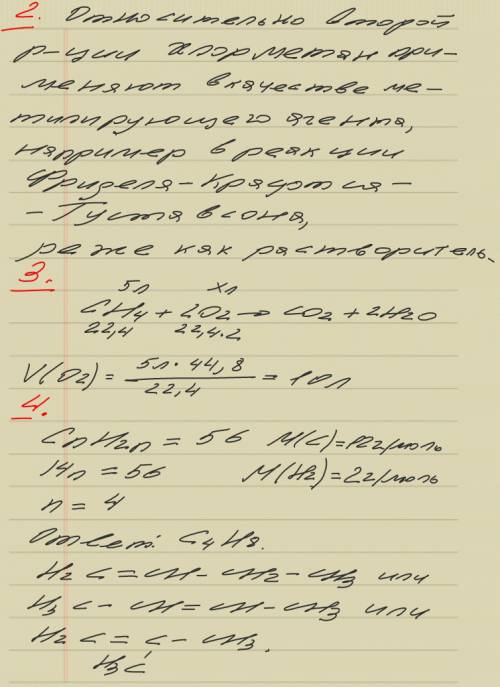 2. Относительно второй
р-ции хлорметан при-
меняют в качестве ме-
тилирующего агента,
например в реакции
Фриделя-Крафтса-
-Густавсона,
реже как растворитель.
3.
5л хл
CH4 + 2O2 → CO2 + 2H2O
22,4 22,4·2
V(O2) = 5л·44,8 / 22,4 = 10л
4.
CnH2n = 56 M(C)=12г/моль
14n = 56 M(H2)=2г/моль
n = 4
Ответ: C4H8.
H2C=CH-CH2-CH3 или
H3C-CH=CH-CH3 или
H2C=C-CH3.
H3C